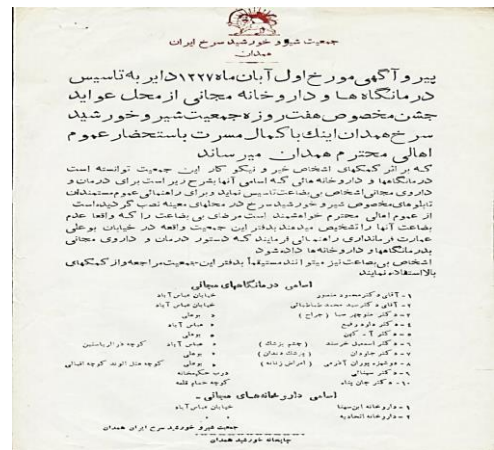 جمعیت شیر و خورشید سرخ ایران
همدان
پیرو آگهی مورخ اول آبان ماه ۱۳۲۷ دایر به تاسیس
درمانگاه ها و داروخانه مجانی از محل عواید
جشن مخصوص هفت روزه جمعیت شیر و خورشید
سرخ همدان اینك با کمال مسرت باستحضار عموم
اهالی محترم همدان میرساند
که بر اثر کمکهای اشخاص خیر و نیکو کار این جمعیت توانسته است
درمانگاهها و داروخانه هائی که اسامی آنها بشرح زیر است برای درمان و
داروی مجانی اشخاص بی بضاعت تاسیس نماید و برای راهنمائی عموم مستمندان
تابلوهای مخصوص شیر و خورشید سرخ در محلهای معینه نصب گردیده است
از عموم اهالی محترم خواهشمند است مرضای بی بضاعت را که واقعا عدم
بضاعت آنها را تشخیص میدهند بدفتر این جمعیت واقعه در خیابان بوعلی
عمارت فرمانداری راهنمائی فرمایند که دستور درمان و داروی مجانی
بدرمانگاهها و داروخانه ها داده شود
اشخاص بی بضاعت نیز میتوانند مستقیماً بدفتر این جمعیت مراجعه و از کمکهای
بالا استفاده نمایند
اسامی درمانگاههای مجانی
۱ - آقای دکتر محمود منصور خیابان عباس آباد
۲ - آقای دکتر سید محمد طباطبائی خیابان عباس آباد
۳ - دکتر منوچهر صبا ( جراح ) » بوعلی
۴ - دکتر داود رفیع » عباس آباد
۵ - دکتر آ - کهن » بوعلی
۶ - دکتر اسمعیل خرسند ( چشم پزشك ) » عباس آباد کوچه
۷ - دکتر جاویدان ( پزشك دندان ) » بوعلی
۸ - دوشیزه پوران آذرمی ( امراض زنانه ) » بوعلی کوچه هتل الوند کوچه
۹ - دکتر درب حکیمخانه
۱۰ - دکتر جان پناه کوچه حمام قلعه
اسامی داروخانه های مجانی -
۱ - داروخانه ابن سینا خیابان عباس آباد
۲ - داروخانه اتحادیه » »
جمعیت شیر و خورشید سرخ ایران همدان
چاپخانه خورشید همدان